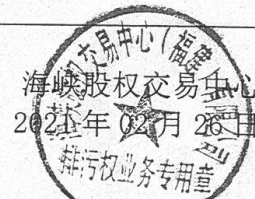 海峡股权交易中心
2021年02月26日
海峡股权交易中心（福建）有限公司
排污权业务专用章